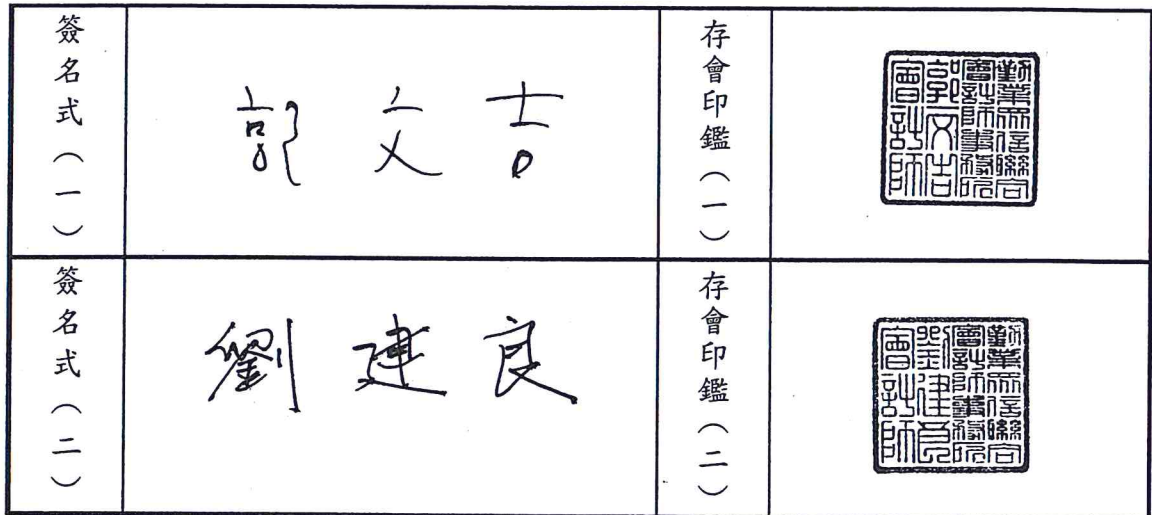 簽名式（一）
郭文吉
存會印鑑（一）
勤業眾信聯合
會計師事務所
郭文吉
會計師
簽名式（二）
劉建良
存會印鑑（二）
勤業眾信聯合
會計師事務所
劉建良
會計師